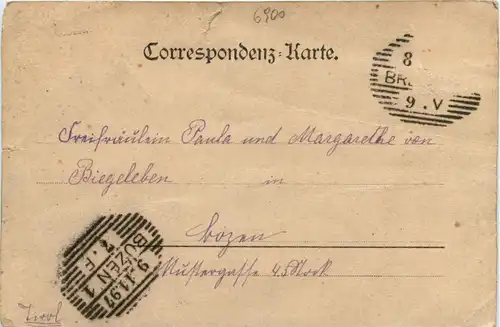 6900
Correspondenz-Karte.
8
BR
9. V
Freifräulein Paula und Margarethe von
Biegeleben in
Bozen
Mustergasse 4. Stock
BOZEN 1
9. 11. 97
2. F
Tirol